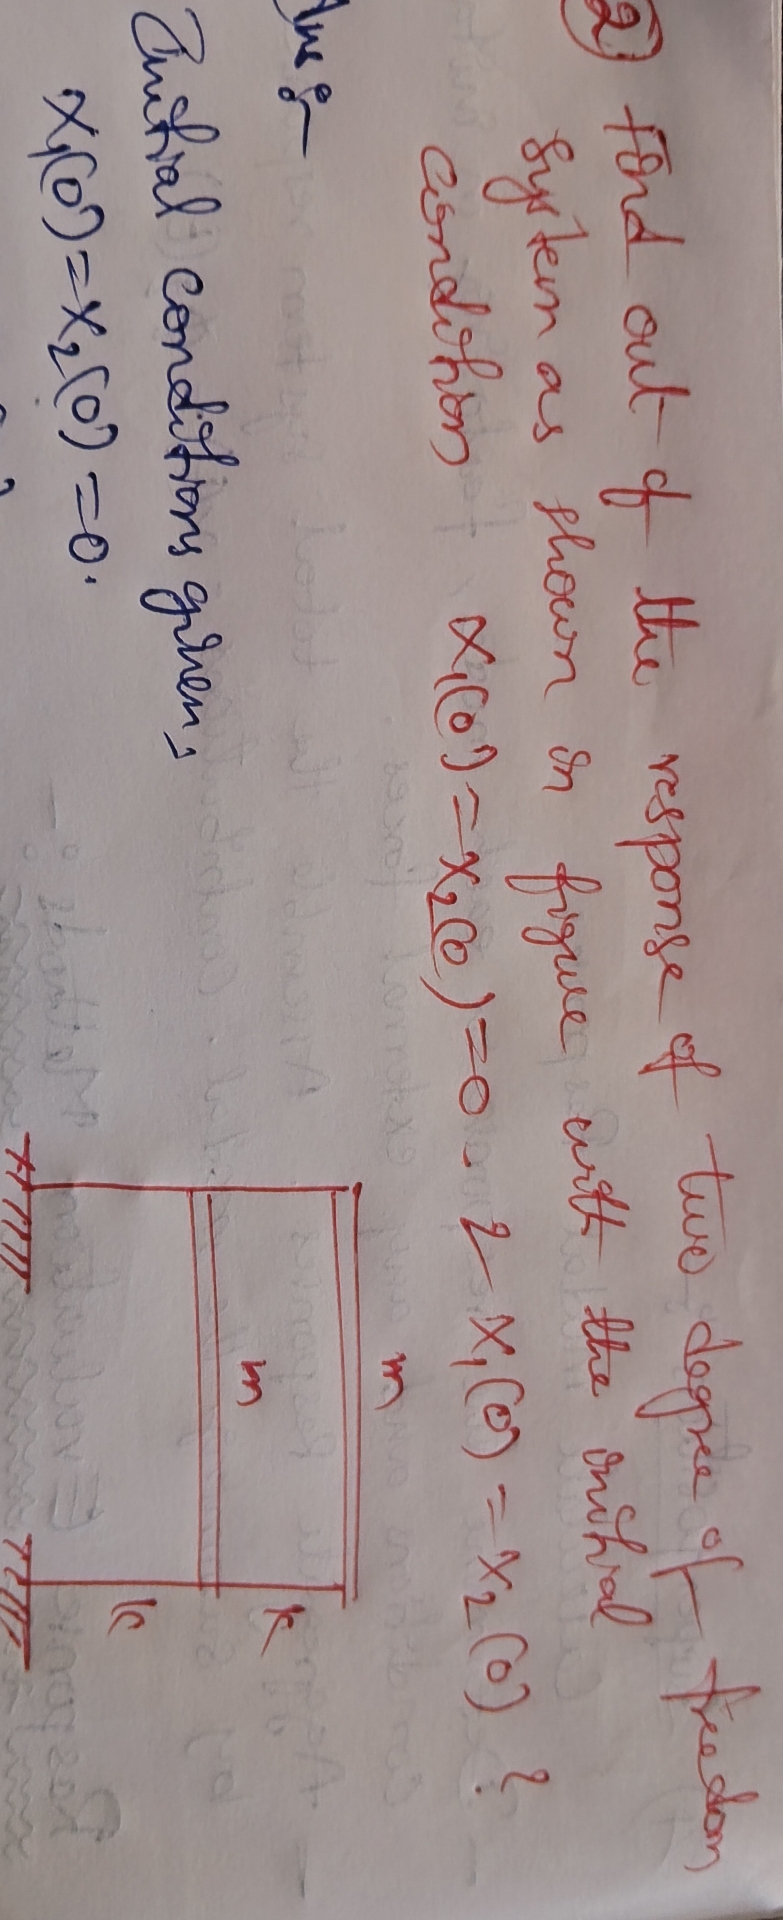 2) Find out of the response of two degree of freedom
System as shown in figure with the initial
condition x₁(0) = x₂(0) = 0. 2 x₁(0) = x₂(0) ?
Ans:-
Initial conditions given,
x₁(0) = x₂(0) = 0.
m
m
k
k